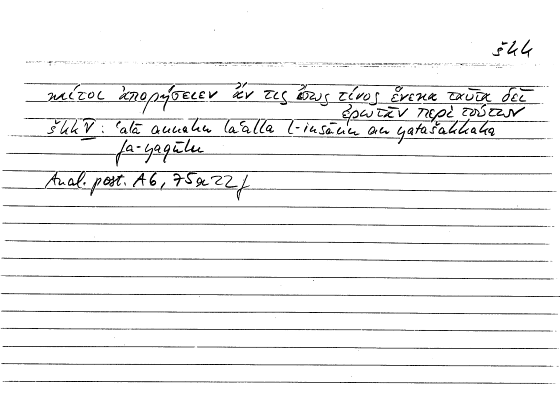 škk
καίτοι ἀπορήσειεν ἄν τις ἴσως τίνος ἕνεκα ταῦτα δεῖ
ἐρωτᾶν περὶ τούτων
škk V : ʿalā annahu laʿalla l-insāna an yatašakkaka
fa-yaqūlu
Anal. post. A6, 75a22f